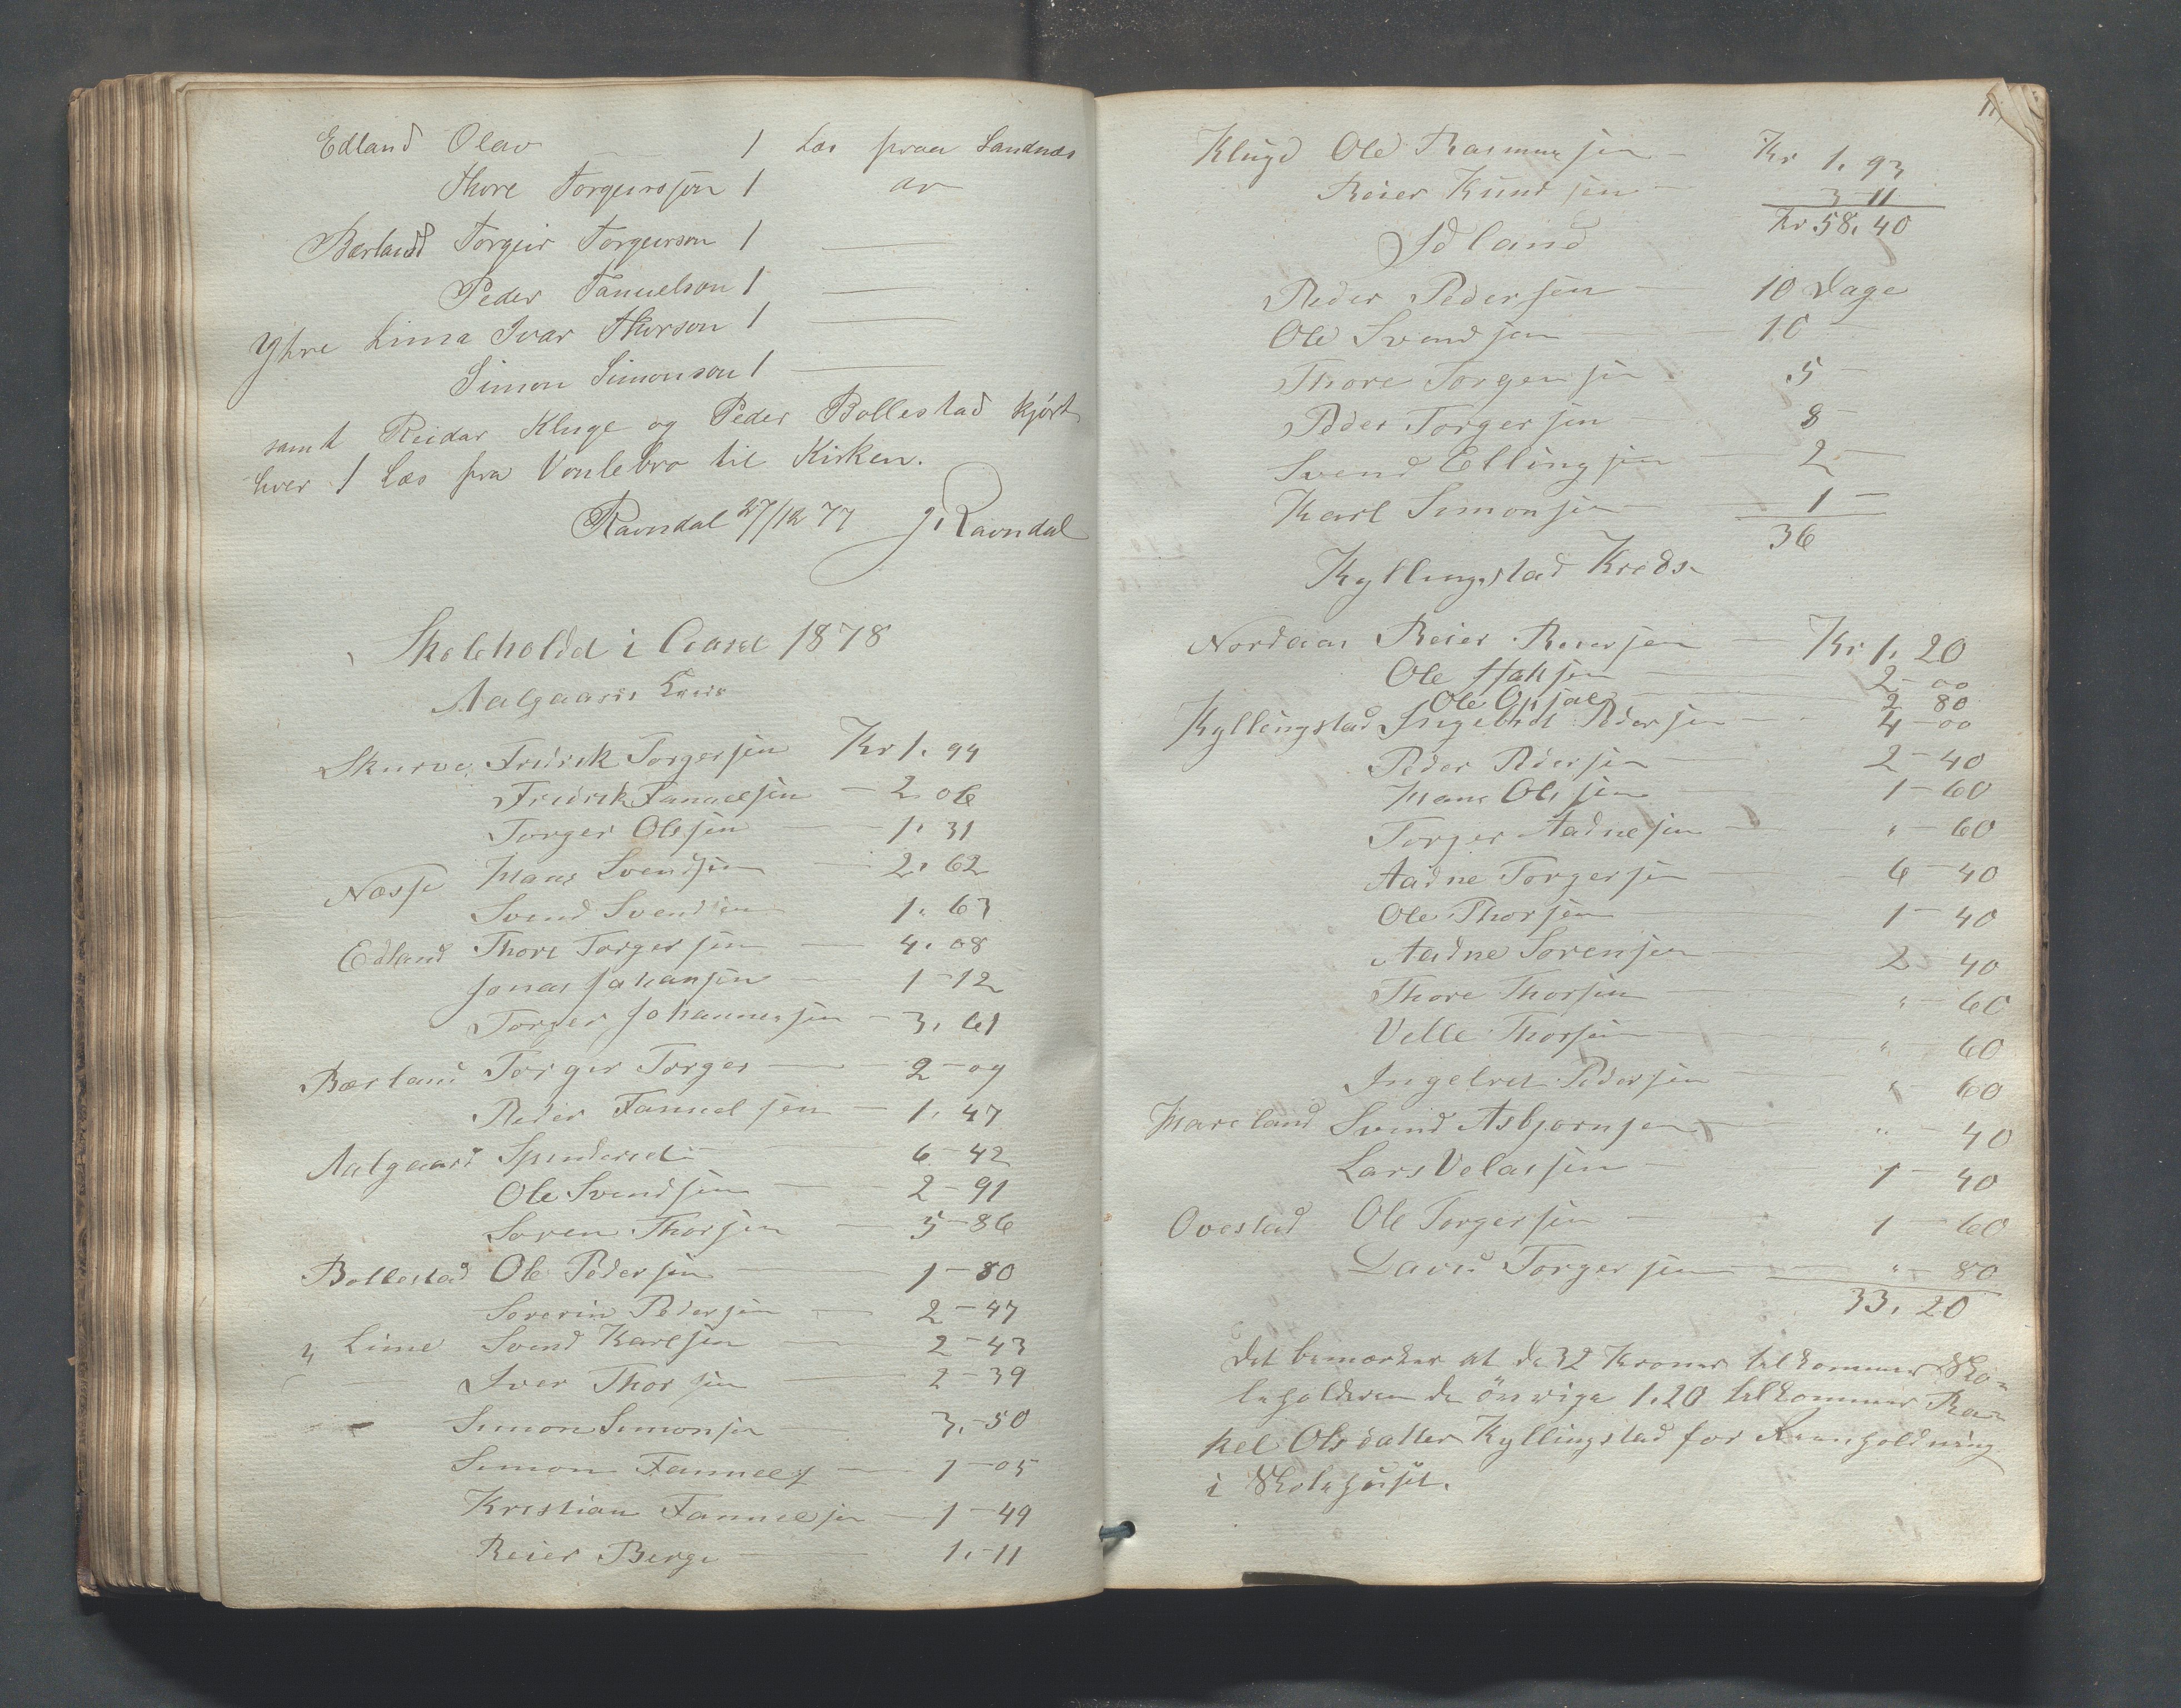 Edland Olav — 1 Læs fraa Sandnæs
Thore Torgeirssøn 1 do
Bærland Torgeir Torgeirson 1 —
Peder Tanuelson 1 —
Ytre Lima Ivar Thorson 1 —
Simon Simonson 1 —
samt Reidar Kluge og Peder Bollestad kjørt
hver 1 Læs fra Vonlebro til Kirken.
Ravndal 27/12 77 J. Ravndal
Skoleholdet i Aaret 1878
Aalgaards Kreds
Skurve Fredrik Torgersen Kr 1. 94
Fredrik Fanuelsen — 2. 06
Torger Olsen — 1. 31
Næsse Hans Svendsen — 2. 62
Svend Svendsen 1. 63
Edland Thore Torgersen — 4. 08
Jonas Johansen — 1 - 12
Torger Johannessen — 3. 61
Bærland Torger Torger — 2 - 09
Peder Fanuelsen — 1. 47
Aalgaard Spinderiet — 6 - 42
Ole Svendsen — 2 - 91
Soren Thorsen — 5 - 86
Bollestad Ole Pedersen — 1 - 80
Soverin Pedersen — 2 - 47
Y Lime Svend Karlsen — 2 - 43
— Iver Thorsen — 2 - 39
— Simon Simonsen — 3. - 50
Simon Fanuels — 1 - 05
Kristian Fanuelsen — 1 - 49
Reier Berge — 1. - 11
Klugd Ole Rasmussen — Kr 1. 93
Reier Knudsen — 3 - 11
Kr. 58. 40
Idland
Peder Pedersen — 10 Dage
Ole Svendsen — 10 —
Thore Torgersen 5 —
Peder Torgersen — 8 -
Svend Ellingsen — 2 —
Karl Simonsen — 1 —
36
Kyllingstad Kreds
Nordaas Reier Reiersen — Kr 1. 20
Ole Hansen — 2 - 00
Ole Opsal — 2 80
Kyllingstad Ingebret Pedersen — 4 - 00
Peder Pedersen — 2 - 40
Hans Olssen — 1 - 60
Torger Aadnesen — " - 60
Aadne Torgersen — 6 - 40
Ole Thorsen — 1 - 40
Aadne Sorensen — 2 40
Thore Thorsen — " - 60
Velle Thorsen — " 60
Ingebret Pedersen — " 60
Hareland Svend Asbjornsen — " - 40
Lars Velassen — 1 - 40
Ovestad Ole Torgersen — 1 - 60
David Torgersen — " - 80
33. 20
Det bemærkes at de 32 Kroner tilkommer Sko-
leholderen de øvrige 1.20 tilkommer Ra-
kel Olsdatter Kyllingstad for Reenholdning
i Skolehuset.